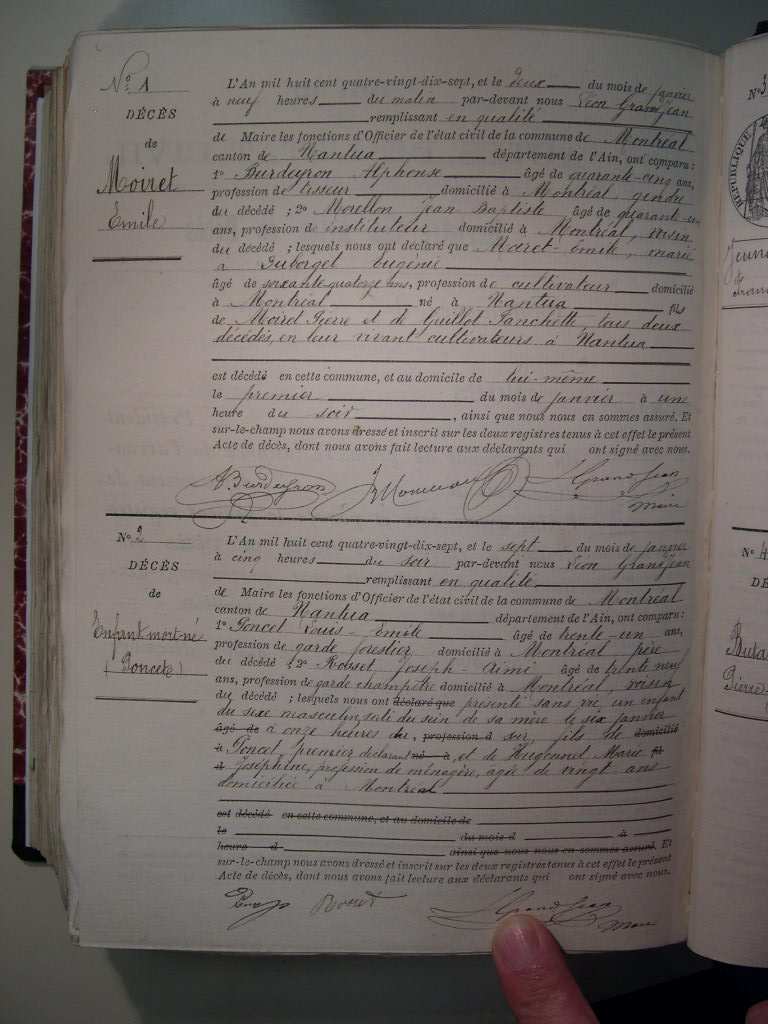 N° 1
DÉCÈS
de
Moiret
Émile
L'An mil huit cent quatre-vingt-dix-sept, et le deux du mois de janvier
à neuf heures du matin par-devant nous Léon Grandjean
remplissant en qualité
de Maire les fonctions d'Officier de l'état civil de la commune de Montréal
canton de Nantua département de l'Ain, ont comparu :
1° Burdeyron Alphonse âgé de quarante-cinq ans,
profession de tisseur domicilié à Montréal, gendre
du décédé ; 2° Morellon Jean Baptiste âgé de quarante-un
ans, profession de instituteur domicilié à Montréal, voisin
du décédé ; lesquels nous ont déclaré que Moiret Émile, marié
à Eugénie
âgé de soixante-quatorze ans, profession de cultivateur domicilié
à Montréal né à Nantua fils
de Moiret Pierre et de Guillot Fanchette, tous deux
décédés, en leur vivant cultivateurs à Nantua
est décédé en cette commune, et au domicile de lui-même
le premier du mois de janvier à une
heure du soir, ainsi que nous nous en sommes assuré. Et
sur-le-champ nous avons dressé et inscrit sur les deux registres tenus à cet effet le présent
Acte de décès, dont nous avons fait lecture aux déclarants qui ont signé avec nous.
A Burdeyron L Grandjean
maire
N° 2
DÉCÈS
de
Enfant mort né
(Poncet)
L'An mil huit cent quatre-vingt-dix-sept, et le sept du mois de janvier
à cinq heures du soir par-devant nous Léon Grandjean
remplissant en qualité
de Maire les fonctions d'Officier de l'état civil de la commune de Montréal
canton de Nantua département de l'Ain, ont comparu :
1° Poncet Louis-Émile âgé de trente-un ans,
profession de garde forestier domicilié à Montréal père
du décédé ; 2° Rosset Joseph-Aimé âgé de trente neuf
ans, profession de garde champêtre domicilié à Montréal, voisin
du décédé ; lesquels nous ont déclaré que présenté sans vie, un enfant
du sexe masculin, sorti du sein de sa mère le six janvier
âgé de à onze heures du, profession d soir, fils de domicilié
à Poncet premier déclarant né à et de Hugonnet Marie fil
d Joséphine, profession de ménagère, agée de vingt ans
domiciliée à Montréal
est décédé en cette commune, et au domicile de
le du mois d à
heure d ainsi que nous nous en sommes assuré. Et
sur-le-champ nous avons dressé et inscrit sur les deux registres tenus à cet effet le présent
Acte de décès, dont nous avons fait lecture aux déclarants qui ont signé avec nous.
Rosset L Grandjean
maire
N° 3
RÉPUBLIQUE
N° 4